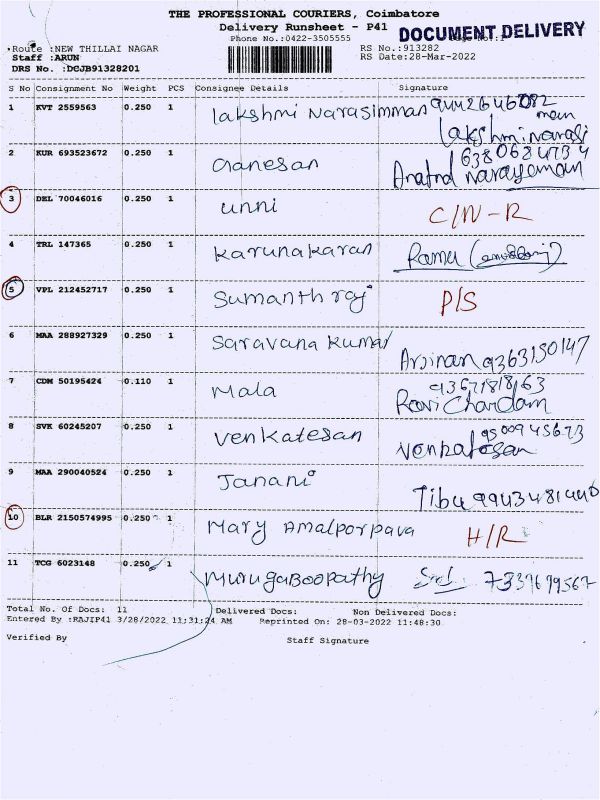 THE PROFESSIONAL COURIERS, Coimbatore
Delivery Runsheet - P41
DOCUMENT DELIVERY
Phone No.:0422-3505555
Route :NEW THILLAI NAGAR
RS No.:913282
Staff :ARUN
RS Date:28-Mar-2022
DRS No. :DCJB91328201
S No Consignment No Weight PCS Consignee Details Signature
1 KVT 2559563 0.250 1 Lakshmi Narasimman 9442646082
Lakshmi narasi
man
2 KUR 693523672 0.250 1 Ganesan 6380684734
Anatnd narayanan
3 DEL 70046016 0.250 1 unni C/N-R
4 TRL 147365 0.250 1 Karunakaran Ramu
5 VPL 212452717 0.250 1 Sumanth raj P/S
6 MAA 288927329 0.250 1 Saravana Kumar 9363150147
7 CDM 50195424 0.110 1 Mala 9367181863
Ravi Chandam
8 SVK 60245207 0.250 1 Venkatesan 9500945673
Venkatesan
9 MAA 290040524 0.250 1 Janani Tibu 9943481440
10 BLR 2150574995 0.250 1 Mary Amalporpava H/R
11 TCG 6023148 0.250 1 Murugaboopathy 7339679567
Total No. Of Docs: 11 Delivered Docs: Non Delivered Docs:
Entered By :RAJIP41 3/28/2022 11:31:24 AM Reprinted On: 28-03-2022 11:48:30
Verified By Staff Signature